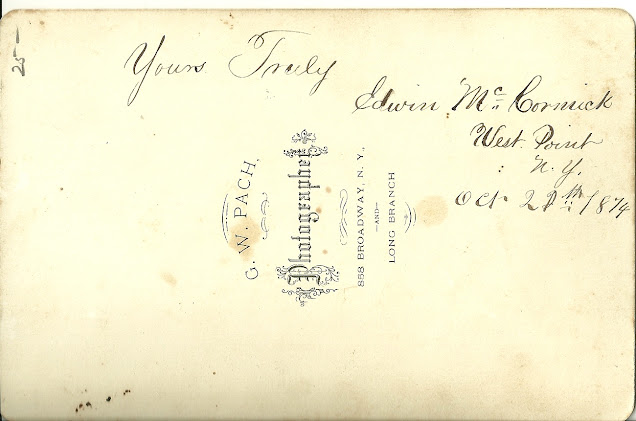 25—
Yours Truly
Edwin Mc Cormick
West Point
N. Y.
Oct 2th 1874
G. W. PACH,
Photographer
858 BROADWAY, N. Y.,
—AND—
LONG BRANCH